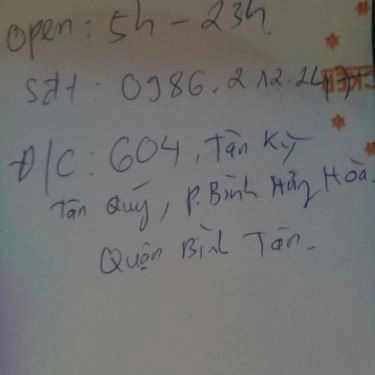 open: 5h - 23h
Sđt: 0986.212.24
Đ/C: 604, Tân Kỳ
Tân Quý, P. Bình Hưng Hòa
Quận Bình Tân.